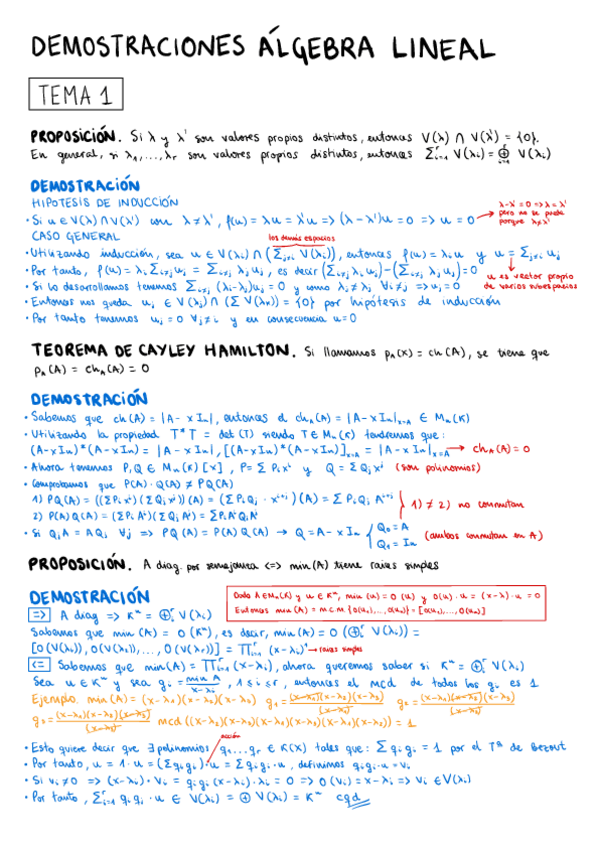 DEMOSTRACIONES ÁLGEBRA LINEAL
TEMA 1
PROPOSICIÓN. Si λ y λ' son valores propios distintos, entonces V(λ) ∩ V(λ') = {0}.
En general, si λ₁,...,λr son valores propios distintos, entonces Σʳᵢ₌₁ V(λi) = ⊕ʳᵢ₌₁ V(λi)
DEMOSTRACIÓN
HIPOTESIS DE INDUCCIÓN
· Si u ∈ V(λ) ∩ V(λ') con λ ≠ λ', f(u) = λu = λ'u => (λ-λ')u = 0 => u = 0
λ-λ' = 0 => λ = λ'
pero no se puede
porque λ ≠ λ'
CASO GENERAL
los demás espacios
· Utilizando inducción, sea u ∈ V(λi) ∩ (Σj≠i V(λj)), entonces f(u) = λi u y u = Σj≠i uj
· Por tanto, f(u) = λi Σj≠i uj = Σj≠i λj uj, es decir (Σj≠i λi uj) - (Σj≠i λj uj) = 0
u es vector propio
de varios subespacios
· Si lo desarrollamos tenemos Σj≠i (λi-λj)uj = 0 y como λi ≠ λj ∀i ≠ j => uj = 0
· Entonces nos queda uj ∈ V(λj) ∩ (Σ V(λk)) = {0} por hipótesis de inducción
· Por tanto tenemos uj = 0 ∀j≠i y en consecuencia u = 0
TEOREMA DE CAYLEY HAMILTON. Si llamamos pA(x) = ch(A), se tiene que
pA(A) = chA(A) = 0
DEMOSTRACIÓN
· Sabemos que ch(A) = |A - xIn|, entonces el chA(A) = |A - xIn|x=A ∈ Mn(K)
· Utilizando la propiedad T*T = det(T) siendo T ∈ Mn(K) tendremos que:
(A-xIn)*(A-xIn) = |A - xIn|, [(A-xIn)*(A-xIn)]x=A = |A - xIn|x=A → chA(A) = 0
· Ahora tenemos P,Q ∈ Mn(K)[x], P = Σ Pi xⁱ y Q = Σ Qj xʲ (son polinomios)
· Comprobamos que P(A)·Q(A) ≠ PQ(A)
1) PQ(A) = ((Σ Pi xⁱ)(Σ Qj xʲ))(A) = (Σ Pi Qj · xⁱ⁺ʲ)(A) = Σ Pi Qj Aⁱ⁺ʲ
2) P(A)Q(A) = (Σ Pi Aⁱ)(Σ Qj Aʲ) = Σ Pi Aⁱ Qj Aʲ
1) ≠ 2) no conmutan
· Si QjA = AQj ∀j => PQ(A) = P(A)Q(A) → Q = A - xIn
Q0 = A
Q1 = In
(ambos conmutan en A)
PROPOSICIÓN. A diag. por semejanza <=> min(A) tiene raíces simples
DEMOSTRACIÓN
Dado A ∈ Mn(K) y u ∈ Kⁿ, min(u) = O(u) y O(u)·u = (x-λ)·u = 0
Entonces min(A) = m.c.m {O(u1),...,O(un)} = [O(u1),...,O(un)]
=> A diag => Kⁿ = ⊕ʳᵢ V(λi)
Sabemos que min(A) = O(Kⁿ), es decir, min(A) = O(⊕ʳᵢ V(λi)) =
[O(V(λ1)), O(V(λ2)),..., O(V(λr))] = ∏ʳᵢ₌₁ (x-λi) → raíces simples
<= Sabemos que min(A) = ∏ʳᵢ₌₁ (x-λi), ahora queremos saber si Kⁿ = ⊕ʳᵢ V(λi)
Sea u ∈ Kⁿ y sea gi = min A / x-λi, 1≤i≤r, entonces el mcd de todos los gi es 1
Ejemplo. min(A) = (x-λ1)(x-λ2)(x-λ3) g1 = (x-λ1)(x-λ2)(x-λ3) / (x-λ1) g2 = (x-λ1)(x-λ2)(x-λ3) / (x-λ2)
g3 = (x-λ1)(x-λ2)(x-λ3) / (x-λ3) mcd((x-λ2)(x-λ3)(x-λ1)(x-λ3)(x-λ1)(x-λ2)) = 1
acción
· Esto quiere decir que ∃ polinomios q1...qr ∈ K(x) tales que: Σ qi gi = 1 por el Tª de Bezout
· Por tanto, u = 1·u = (Σ qi gi)·u = Σ qi gi·u, definimos qi gi·u = vi
· Si vi ≠ 0 => (x-λi)·vi = qi gi (x-λi)·u = 0 => O(vi) = x-λi => vi ∈ V(λi)
· Por tanto, Σʳᵢ₌₁ qi gi·u ∈ V(λi) = ⊕ V(λi) = Kⁿ cqd